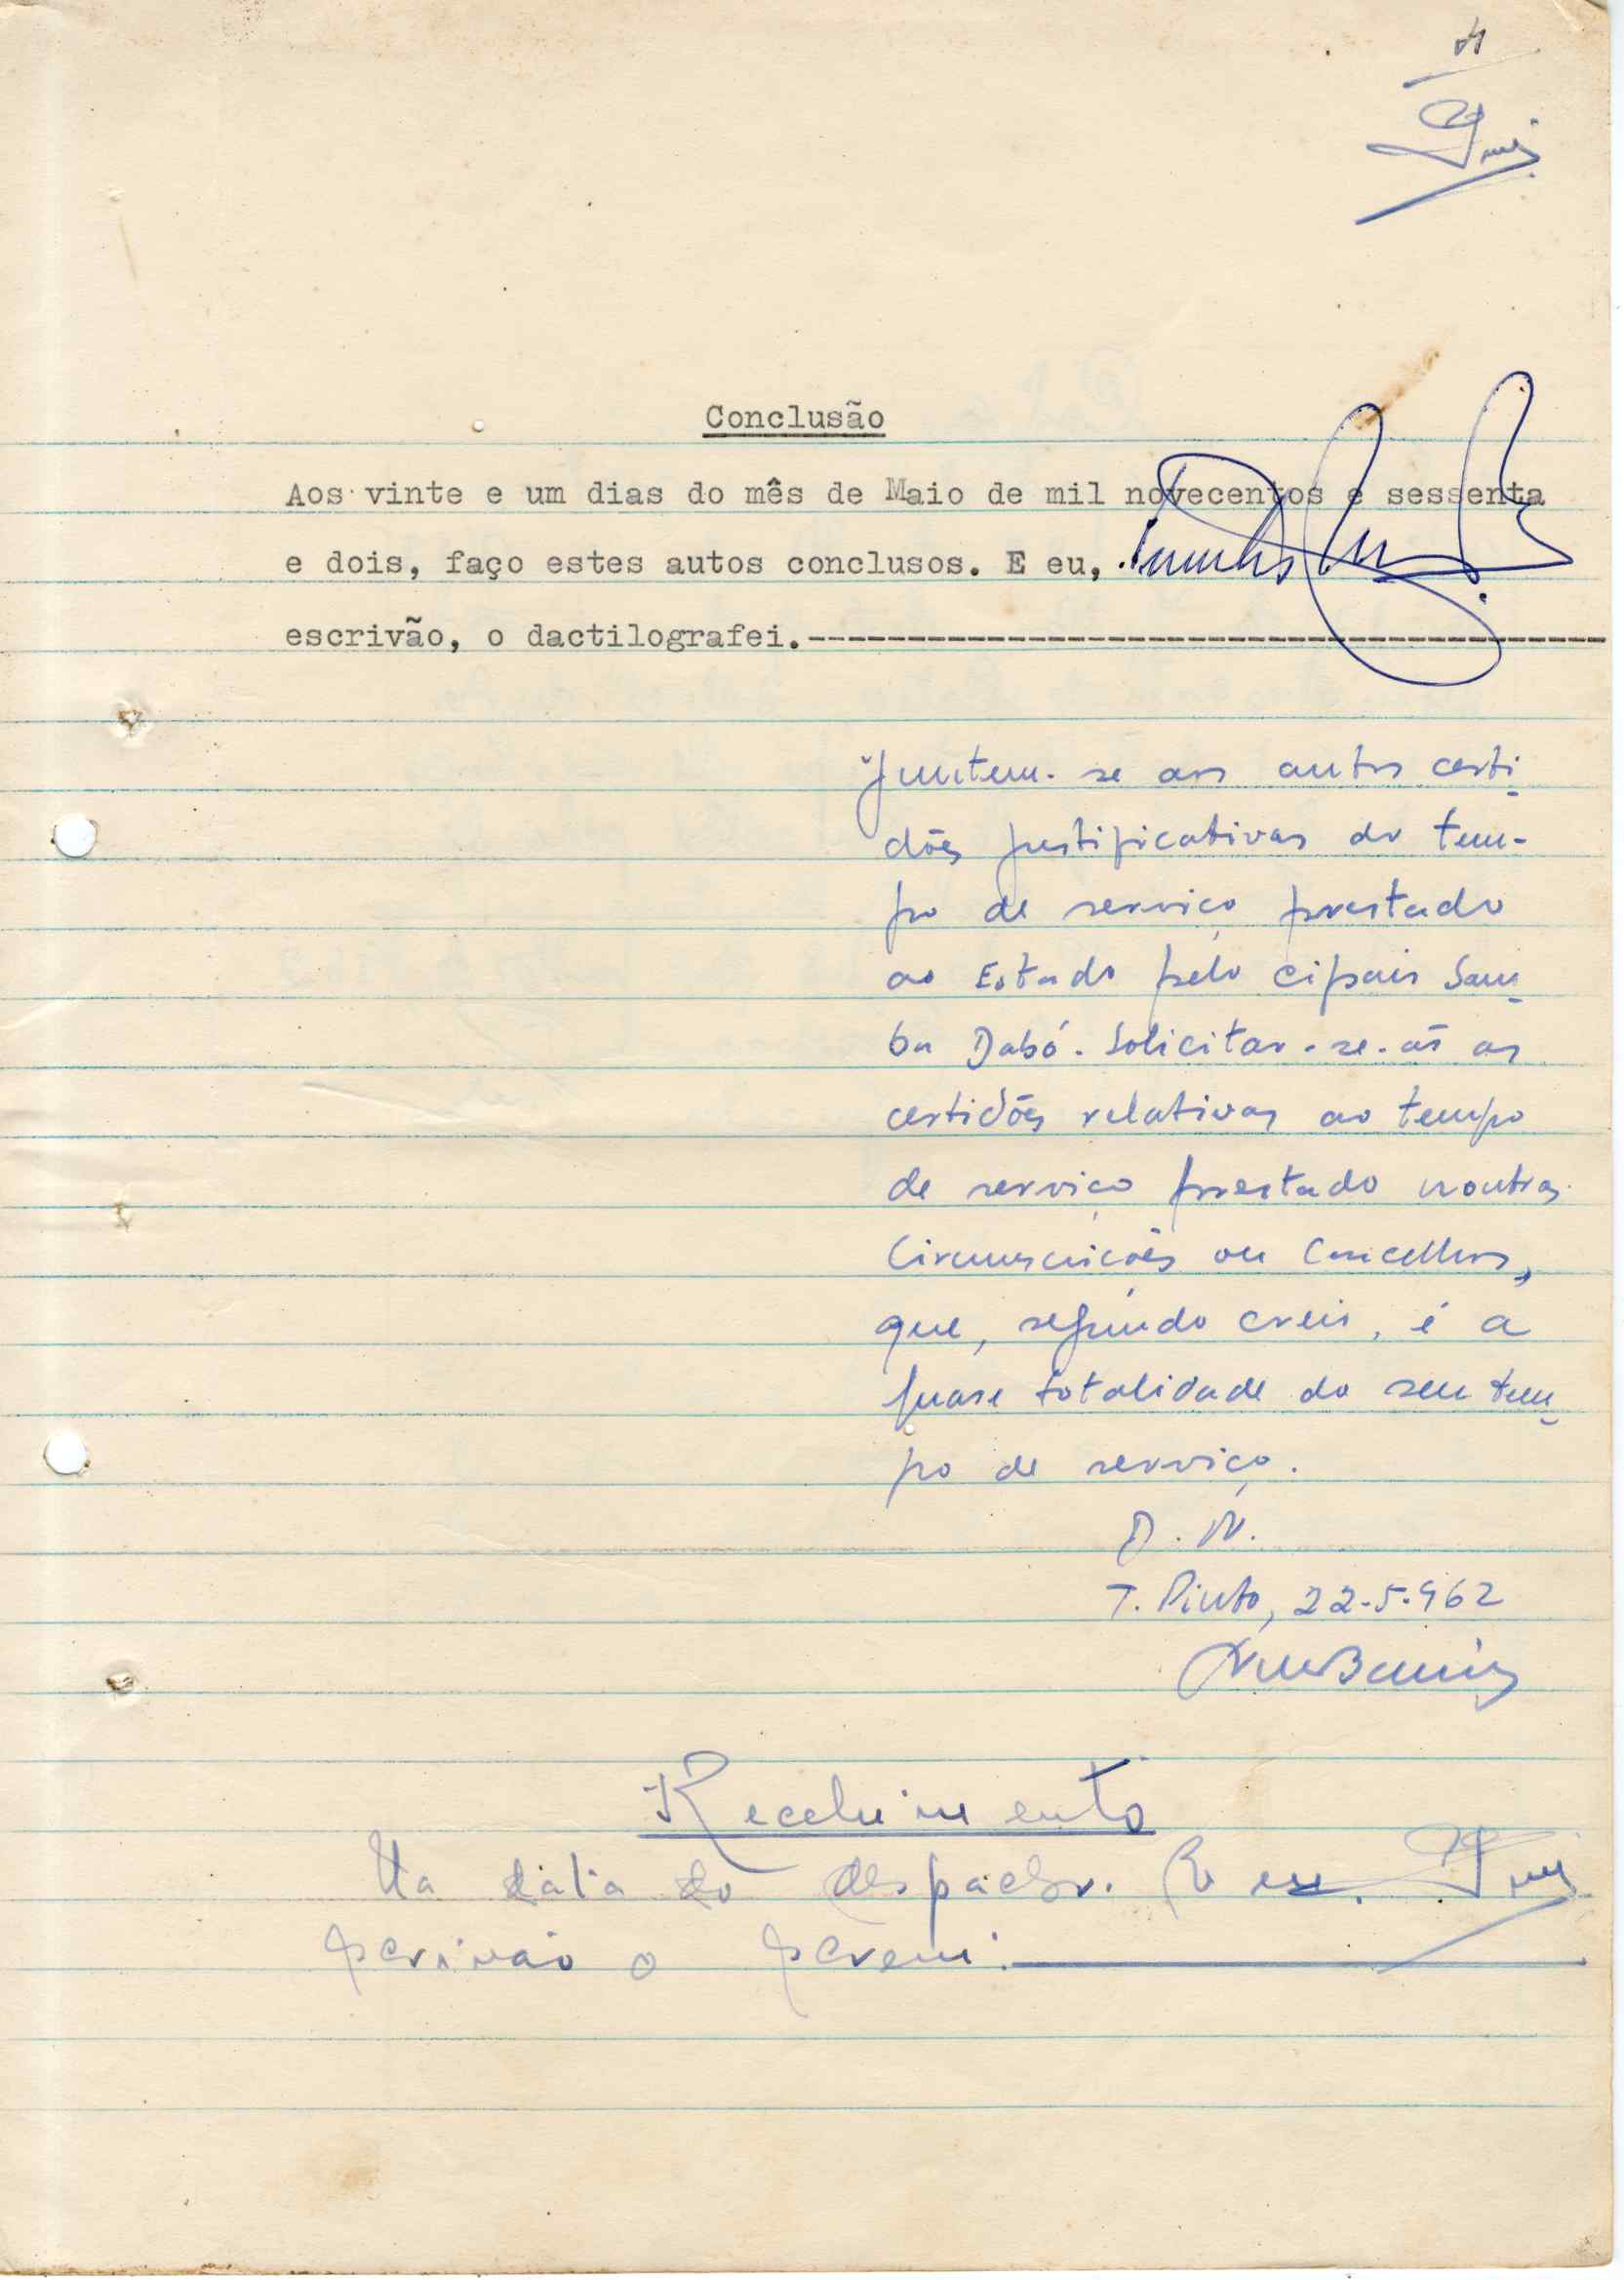 4
Conclusão
Aos vinte e um dias do mês de Maio de mil novecentos e sessenta
e dois, faço estes autos conclusos. E eu,
escrivão, o dactilografei.---
Juntem-se aos autos certi-
dões justificativas do tem-
po de serviço prestado
ao Estado pelo cipais Sam-
ba Dabó. Solicitar-se-ão as
certidões relativas ao tempo
de serviço prestado noutras
Circunscrições ou Concelhos,
que, segundo creio, é a
quase totalidade do seu tem-
po de serviço.
D. N.
T. Pinto, 22-5-962
Recebimento
Na data do despacho. E eu,
escrivão o escrevi.